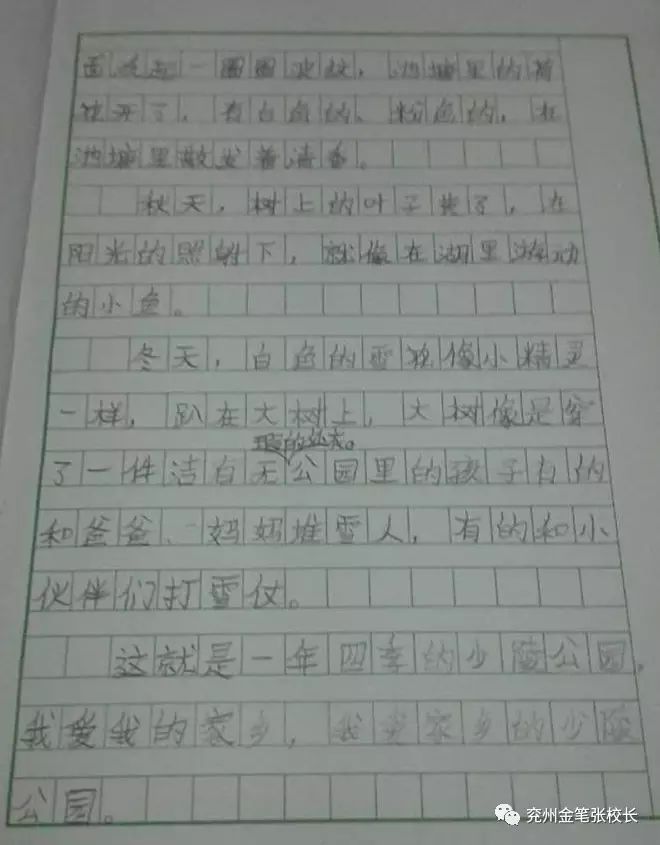 面泛起一圈圈波纹，池塘里的荷
花开了，有白色的、粉色的，在
池塘里散发着清香。
秋天，树上的叶子黄了，在
阳光的照射下，就像在湖里游动
的小鱼。
冬天，白色的雪犹像小精灵
一样，趴在大树上，大树像是穿
瑕的处衣。
了一件洁白无公园里的孩子有的
和爸爸、妈妈堆雪人，有的和小
伙伴们打雪仗。
这就是一年四季的少陵公园，
我爱我的家乡，我爱家乡的少陵
公园。
兖州金笔张校长